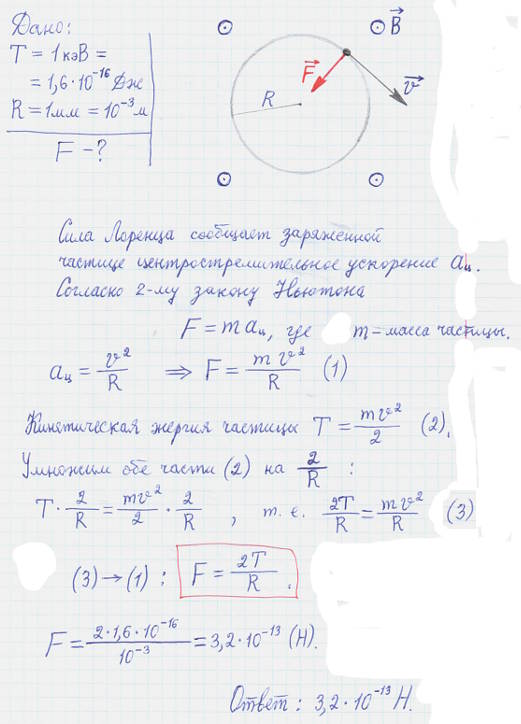 Дано:
T = 1 кэВ =
= 1,6·10⁻¹⁶ Дж
R = 1мм = 10⁻³ м
F - ?
B
F
v
R
Сила Лоренца сообщает заряженной
частице центростремительное ускорение aц.
Согласно 2-му закону Ньютона
F = m aц, где m = масса частицы.
aц = v²/R ⇒ F = mv²/R (1)
Кинетическая энергия частицы T = mv²/2 (2).
Умножим обе части (2) на 2/R :
T · 2/R = mv²/2 · 2/R , т.е. 2T/R = mv²/R (3)
(3) → (1) : F = 2T/R .
F = 2·1,6·10⁻¹⁶/10⁻³ = 3,2·10⁻¹³ (Н).
Ответ: 3,2·10⁻¹³ Н.